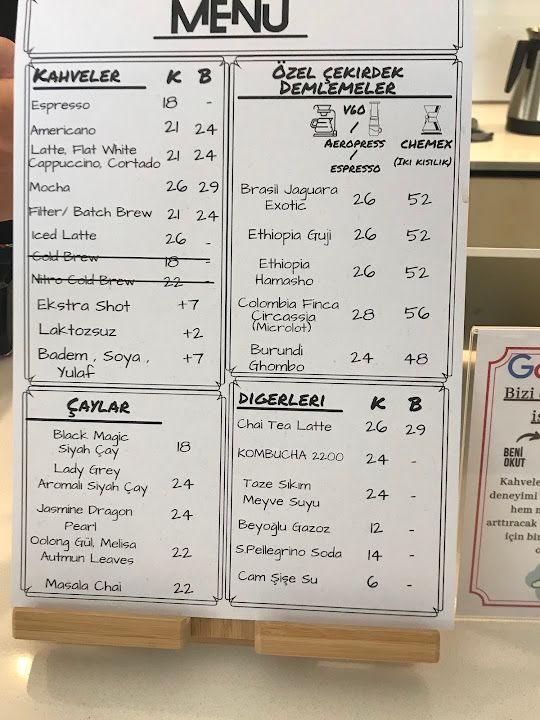 MENU
KAHVELER K B
Espresso 18 -
Americano 21 24
Latte, Flat White
Cappuccino, Cortado 21 24
Mocha 26 29
Filter/ Batch Brew 21 24
Iced Latte 26 -
Cold Brew 18 -
Nitro Cold Brew 22 -
Ekstra Shot +7
Laktozsuz +2
Badem, Soya,
Yulaf +7
ÖZEL ÇEKIRDEK
DEMLEMELER
V60
/
AEROPRESS
/
ESPRESSO
CHEMEX
(IKI KISILIK)
Brasil Jaguara
Exotic 26 52
Ethiopia Guji 26 52
Ethiopia
Hamasho 26 52
Colombia Finca
Circassia
(Microlot) 28 56
Burundi
Ghombo 24 48
ÇAYLAR
Black Magic
Siyah Çay 18
Lady Grey
Aromalı Siyah Çay 24
Jasmine Dragon
Pearl 24
Oolong Gül, Melisa
Autmun Leaves 22
Masala Chai 22
DIGERLERI K B
Chai Tea Latte 26 29
KOMBUCHA 2200 24 -
Taze Sıkım
Meyve Suyu 24 -
Beyoğlu Gazoz 12 -
S.Pellegrino Soda 14 -
Cam Şişe Su 6 -
Bizi
BENİ
OKUT
Kahvele
deneyimi
hem
arttıracak
için bir